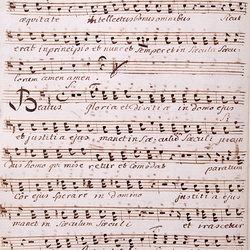 æquitate intellectus bonus omnibus Sicut
erat in principio et nunc et Semper et in Sæcula Sæcu
lorum amen amen
Beatus. gloria et divitiæ in domo ejus
et justitia ejus manet in Sæculum Sæculi
dus homo qui mise retur et comodat paratum
Cor ejus sperare in domino justitia ejus
manet in Sæculum Sæculi et irascetur